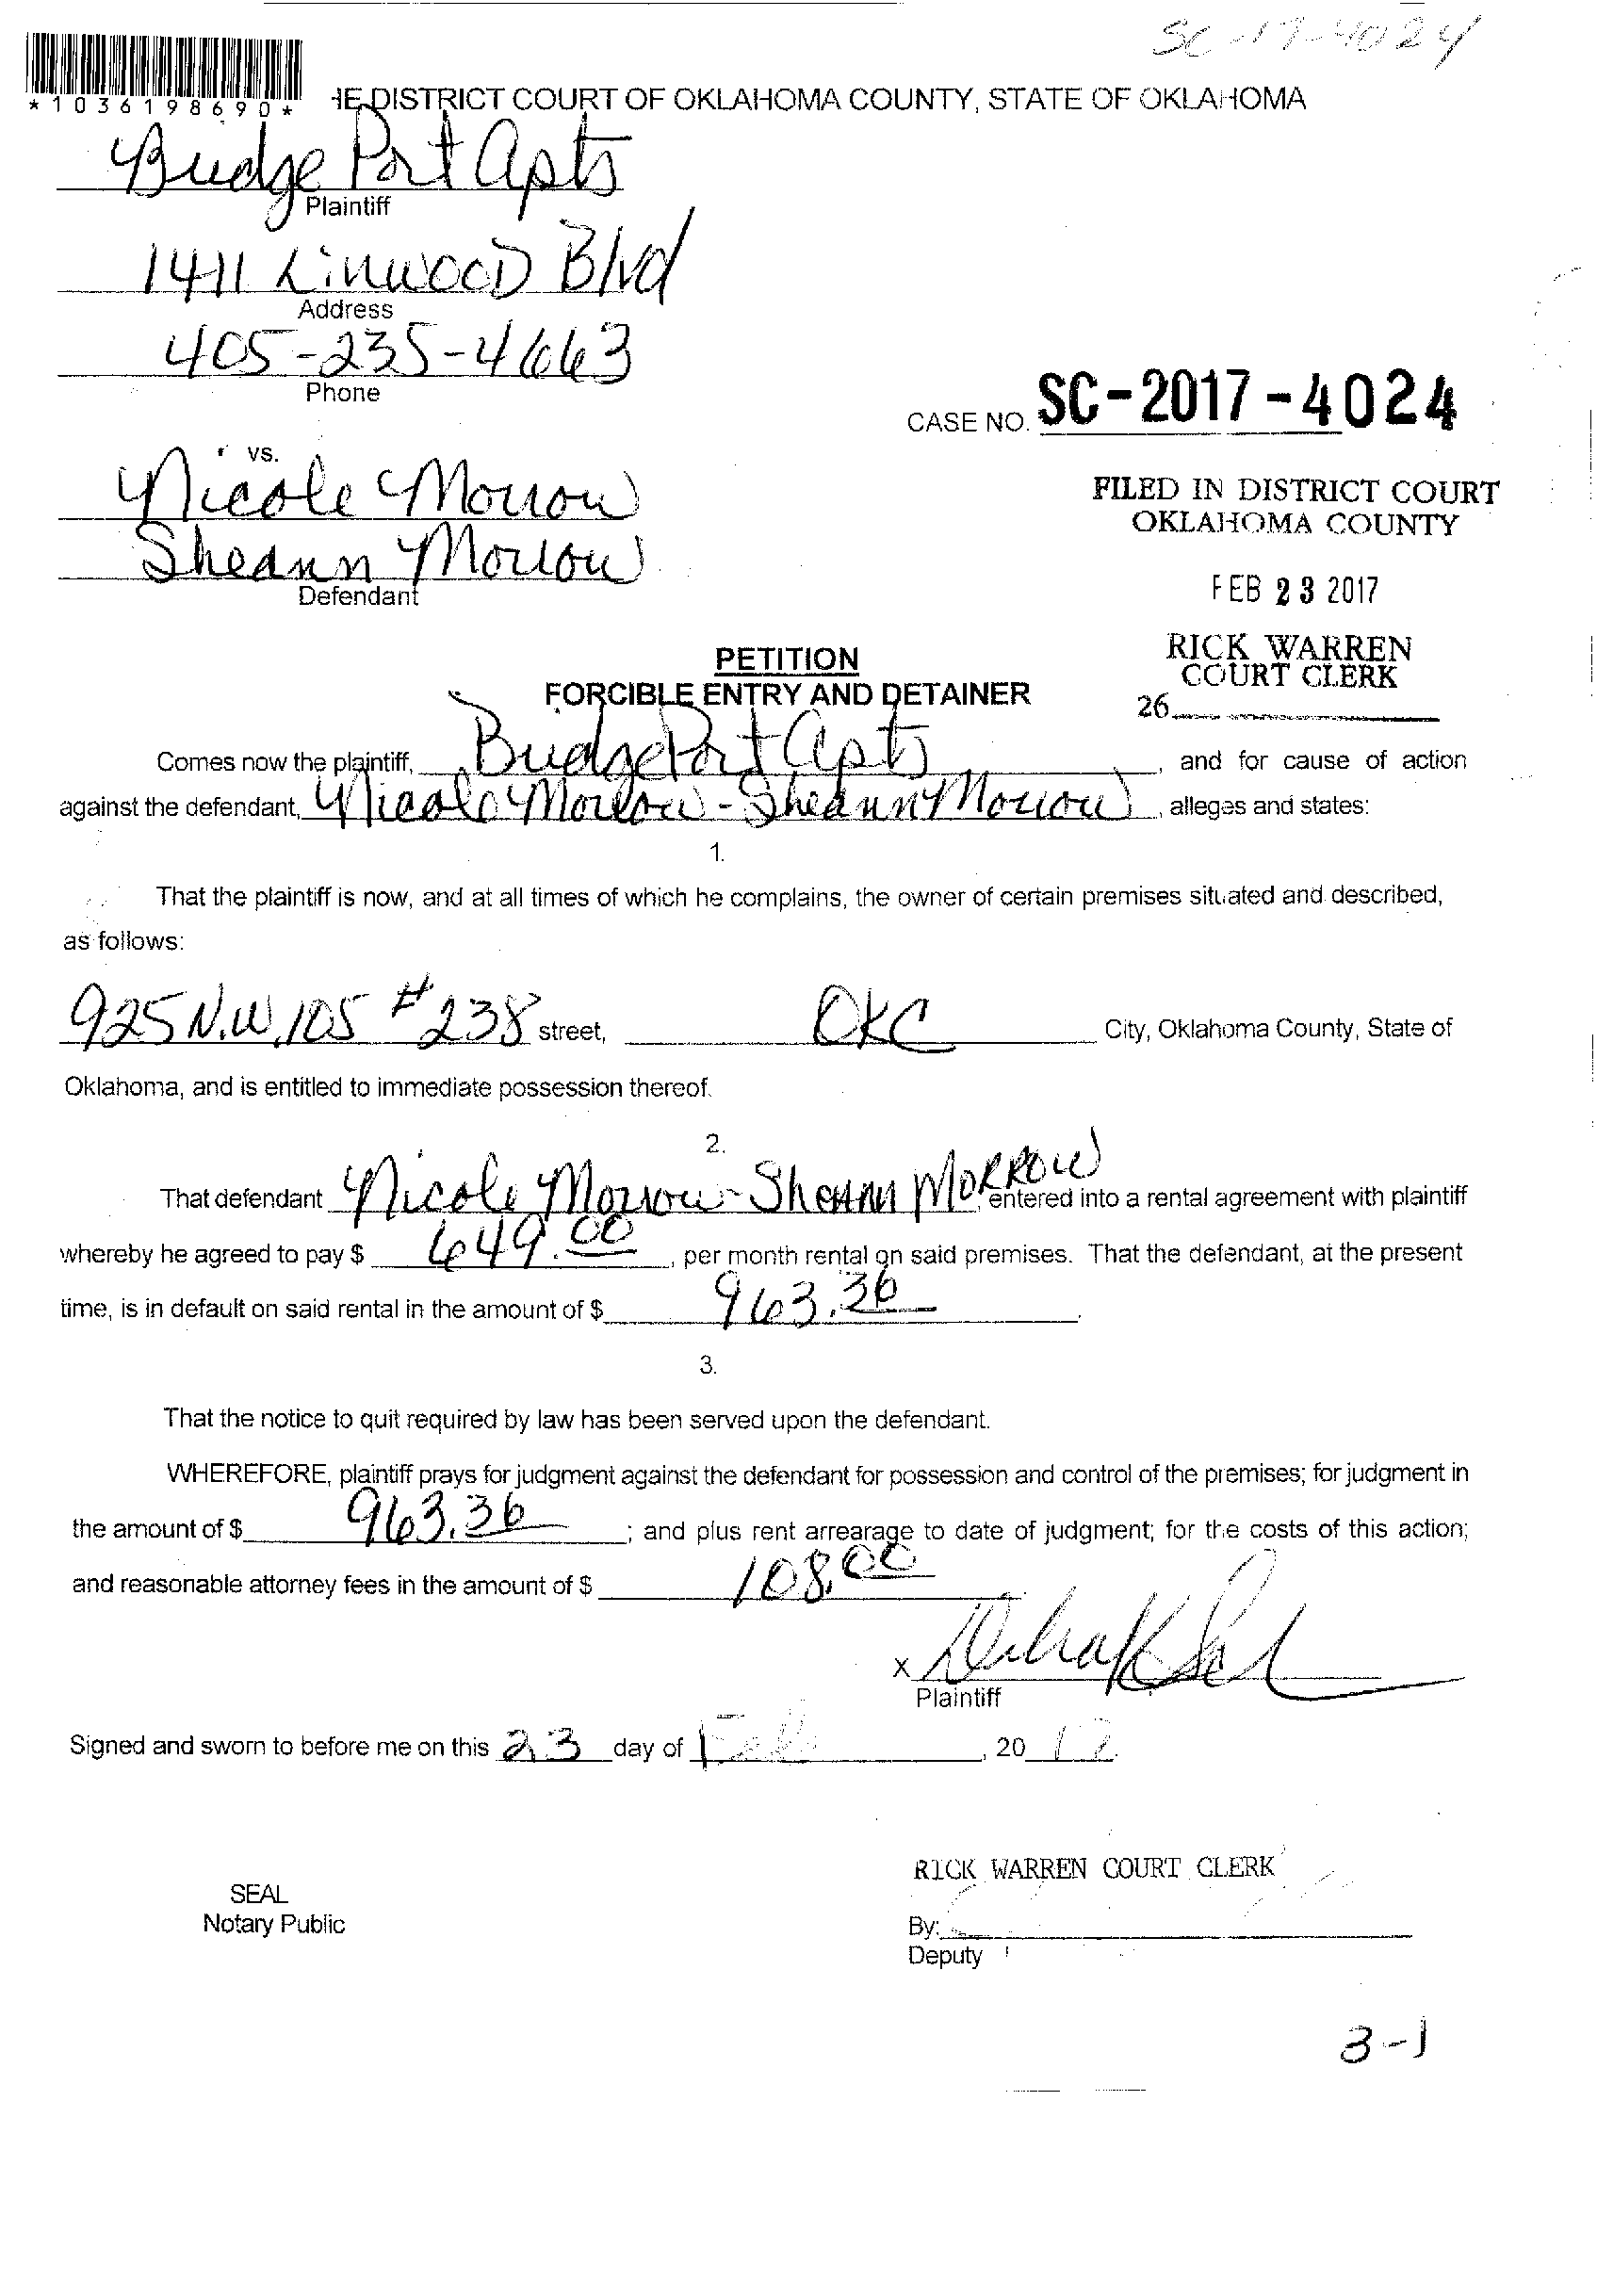 SC-17-4024
*1036198690*
HE DISTRICT COURT OF OKLAHOMA COUNTY, STATE OF OKLAHOMA
Budge Port Apts
Plaintiff
1411 Linwood Blvd
Address
405-235-4663
Phone
CASE NO. SC-2017-4024
vs.
Nicole Morrow
Sheann Morrow
Defendant
FILED IN DISTRICT COURT
OKLAHOMA COUNTY
FEB 23 2017
RICK WARREN
COURT CLERK
26
PETITION
FORCIBLE ENTRY AND DETAINER
Comes now the plaintiff, Budge Port Apts, and for cause of action
against the defendant, Nicole Morrow - Sheann Morrow, alleges and states:
1.
That the plaintiff is now, and at all times of which he complains, the owner of certain premises situated and described,
as follows:
925 N.W. 105 #238 street, OKC City, Oklahoma County, State of
Oklahoma, and is entitled to immediate possession thereof.
2.
That defendant Nicole Morrow - Sheann Morrow, entered into a rental agreement with plaintiff
whereby he agreed to pay $ 649.00, per month rental on said premises. That the defendant, at the present
time, is in default on said rental in the amount of $ 963.36.
3.
That the notice to quit required by law has been served upon the defendant.
WHEREFORE, plaintiff prays for judgment against the defendant for possession and control of the premises; for judgment in
the amount of $ 963.36; and plus rent arrearage to date of judgment; for the costs of this action;
and reasonable attorney fees in the amount of $ 108.00
x
Plaintiff
Signed and sworn to before me on this 23 day of Feb, 2017.
RICK WARREN COURT CLERK
SEAL
Notary Public
By:
Deputy
3-1